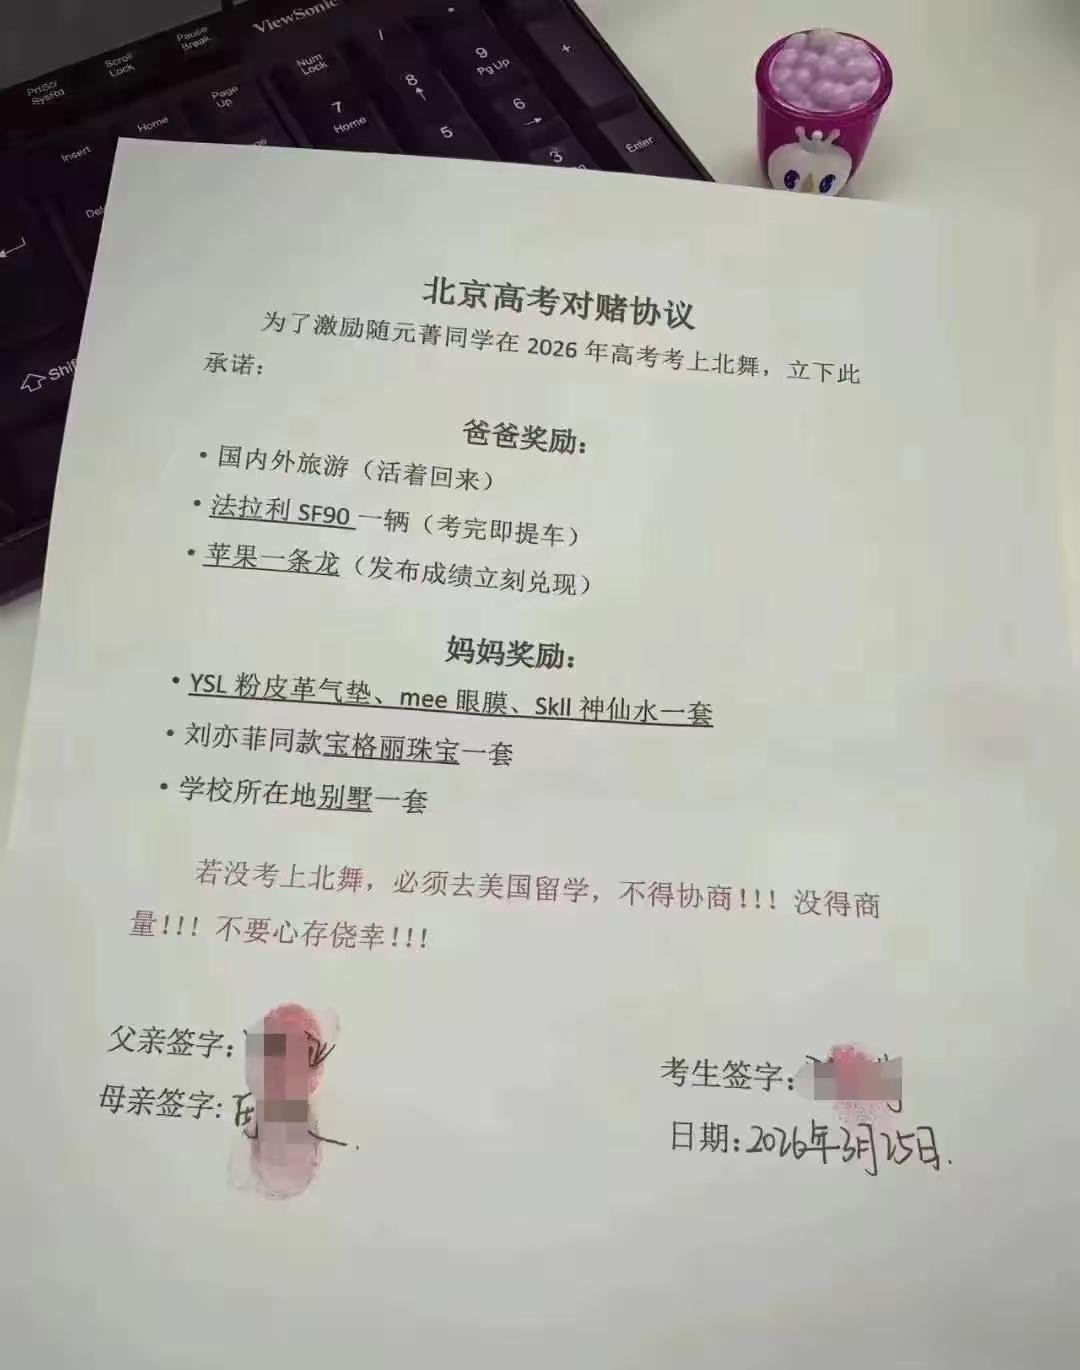 ViewSonic
PrtScr
SysRq
Scroll
Lock
Pause
Break
Insert
Home
Page
Up
Num
Lock
/
*
7
Home
8
9
Pg Up
+
5
6
3
Enter
Shift
北京高考对赌协议
为了激励随元菁同学在 2026 年高考考上北舞，立下此
承诺：
爸爸奖励：
• 国内外旅游（活着回来）
• 法拉利 SF90 一辆（考完即提车）
• 苹果一条龙（发布成绩立刻兑现）
妈妈奖励：
• YSL 粉皮革气垫、mee 眼膜、SkII 神仙水一套
• 刘亦菲同款宝格丽珠宝一套
• 学校所在地别墅一套
若没考上北舞，必须去美国留学，不得协商!!! 没得商
量!!! 不要心存侥幸!!!
父亲签字：
母亲签字：
考生签字：
日期：2026年3月25日.